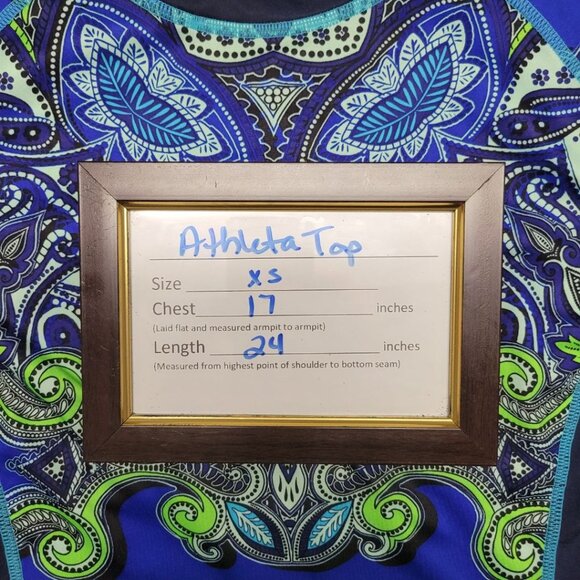 Athleta Top
Size XS
Chest 17 inches
(Laid flat and measured armpit to armpit)
Length 24 inches
(Measured from highest point of shoulder to bottom seam)